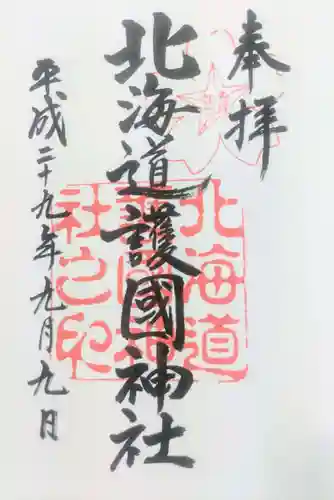 奉拝
北海道護國神社
平成二十九年九月九日
北海道
護國神
社之印